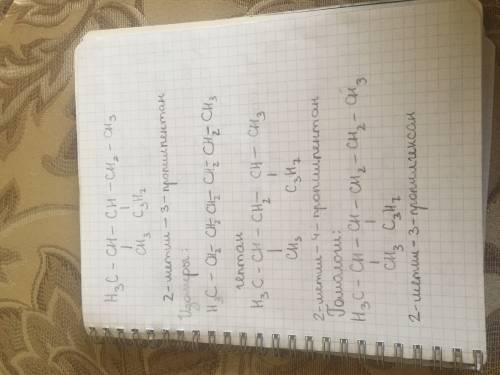 H₃C – CH – CH – CH₂ – CH₃
CH₃ C₃H₇
2-метил-3-пропилпентан
Изомеры:
H₃C – CH₂ – CH₂ – CH₂ – CH₂ – CH₂ – CH₃
гептан
H₃C – CH – CH₂ – CH – CH₃
CH₃ C₃H₇
2-метил-4-пропилпентан
Гомологи:
H₃C – CH – CH – CH₂ – CH₂ – CH₃
CH₃ C₃H₇
2-метил-3-пропилгексан